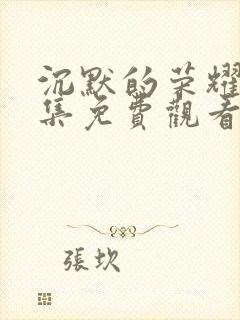 沉默的荣耀
集免費觀看
張坎